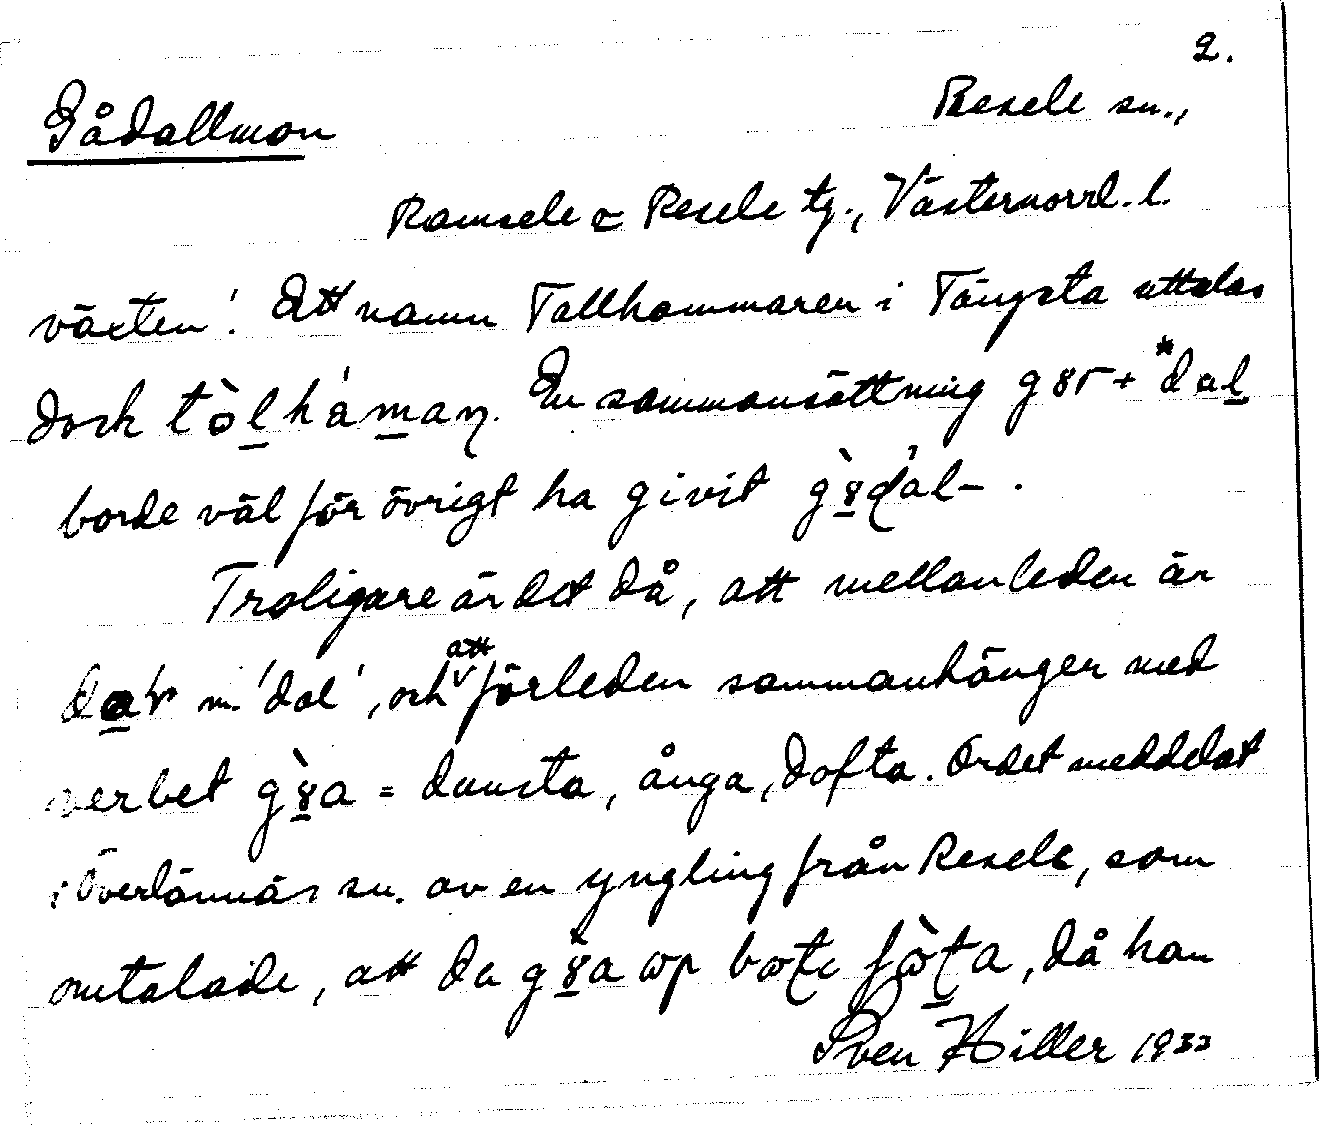 2.
Gådallmon Resele sn.,
Ramsele o Resele tg., Västernorrl. l.
växten'. Ett namn Tallhammaren i Tängsta uttalas
dock tòlhámaṇ. En sammansättning g8r + *dal
borde väl för övrigt ha givit g8̀ɖál- .
Troligare är det då, att mellanleden är
dar m. 'dal', och att förleden sammanhänger med
verbet g8̀a = dunsta, ånga, dofta. Ordet meddelat
i Överlännäs sn. av en yngling från Resele, som
omtalade, att de g8̀a op
då han
Sven Hiller 1933